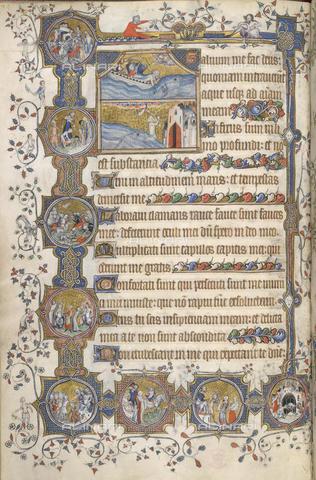 S
aluum me fac deus:
quoniam intrauerunt
aque usq ad aīam
meam
Infixus sum in li
mo profundi: et nō
est substantia
Ueni in altitudinem maris: et tempestas
demersit me
Laboraui clamans rauce facte sunt fauces
mee: defecerunt oculi mei dū spero in dm̄ meū
Multiplicati sunt super capillos capitis mei: qui
oderunt me gratis
Confortati sunt qui persecuti sunt me inimi
ci mei iniuste: que nō rapui tunc exsoluebam
Deus tu scis insipientiam meam: et delicta
mea a te non sunt abscondita
Non erubescant in me qui expectant te dn̄e